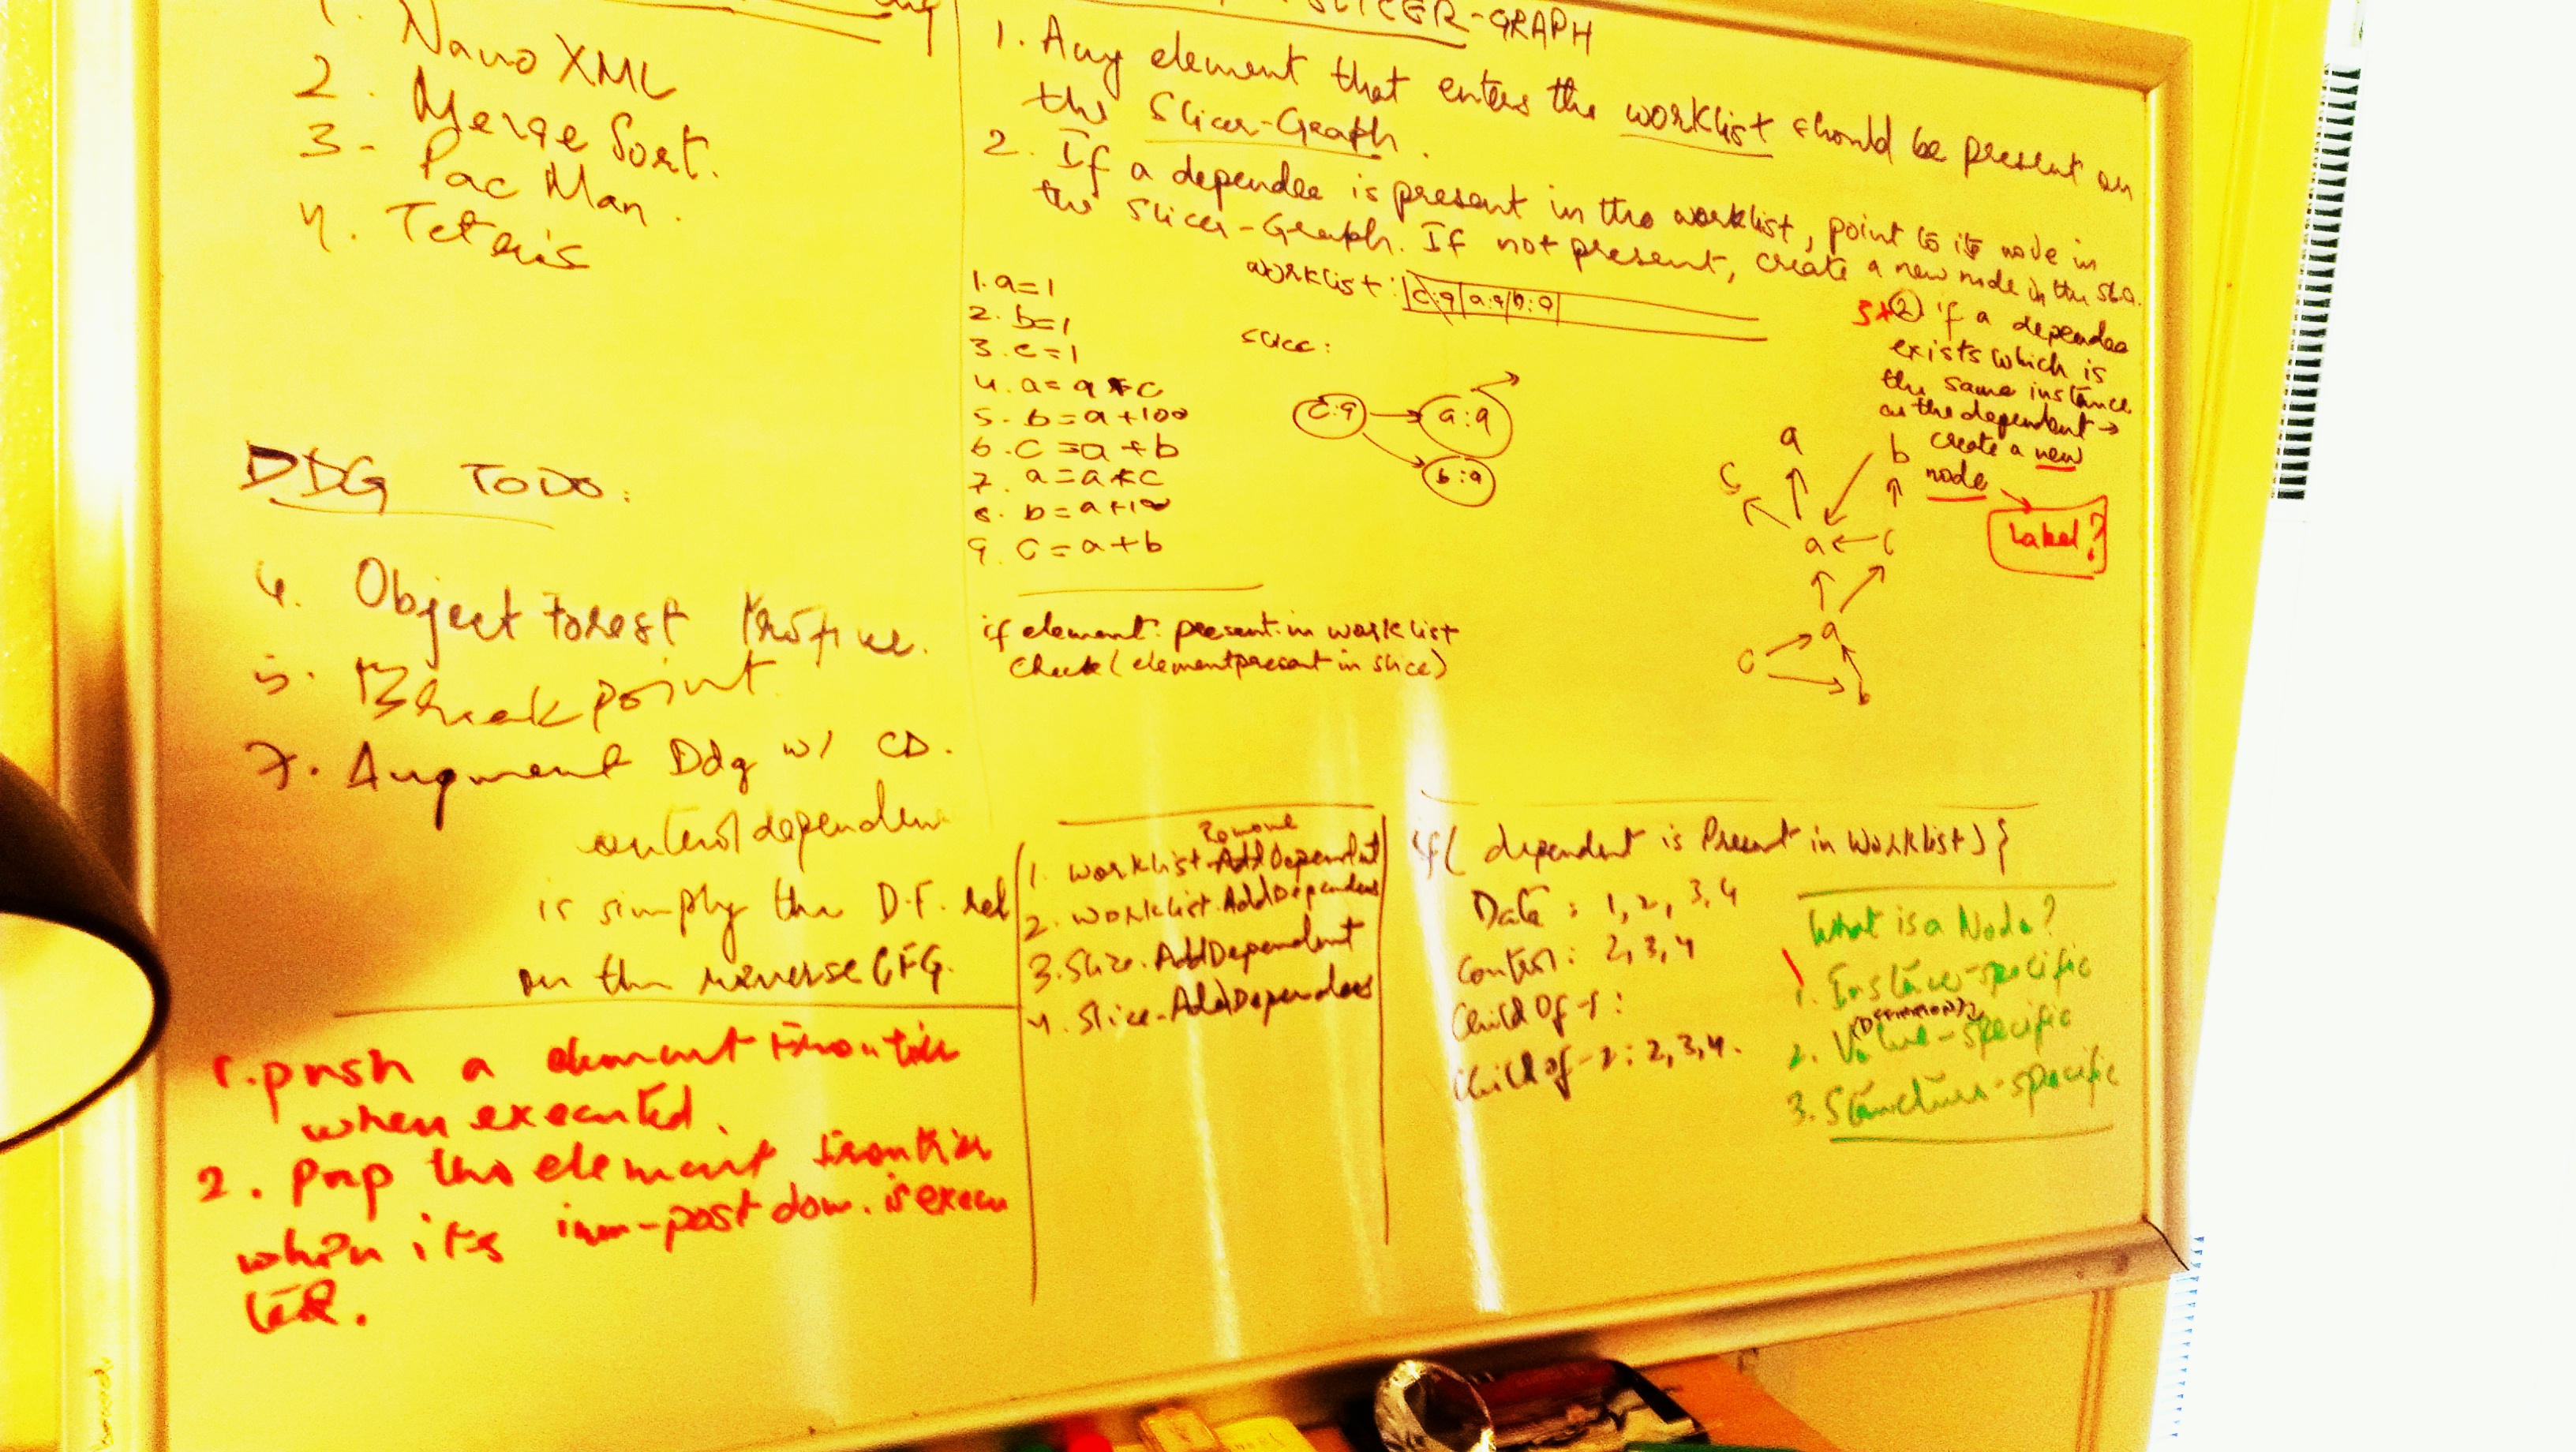 1. Nano XML
2. Merge Sort.
3- Pac Man.
4. Tetris
DDG TODO:
4. Object Forest
5. Break point
7. Augment Ddg w/ CD.
control dependen
is simply the D.F. rel
on the reverse CFG.
1. push a element Frontier
when executed.
2. Pop the element Frontier
when its imm-post dom. is execu
ted.
SLICER-GRAPH
1. Any element that enters the worklist should be present on
the Slicer-Graph.
2. If a dependee is present in the worklist, point to its node in
the Slicer-Graph. If not present, create a new node in the
worklist: c:9 a:9 b:9
1. a=1
2. b=1
3. c=1
4. a=a*c
5. b=a+100
6. c=a+b
7. a=a*c
8. b=a+100
9. c=a+b
slice:
c:9
a:9
b:9
if a dependee
exists which is
the same instance
as the dependent →
create a new
node
Label?
a
b
c
a c
a
c
b
if element present in worklist
check (element present in slice)
Remove
1. worklist.AddDependent
2. worklist.AddDependees
3. Slice.AddDependent
4. Slice.AddDependees
if( dependent is Present in Worklist) {
Data : 1, 2, 3, 4
Control : 2, 3, 4
Child Of -1 :
Child of -2 : 2, 3, 4.
What is a Node?
1. Instance-specific
2. Value-specific
3. Structure-specific